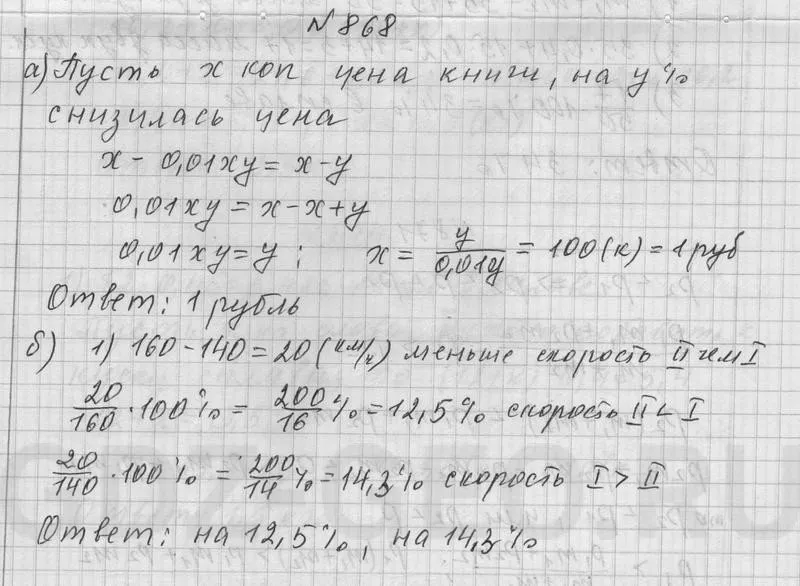 № 868
а) Пусть x коп цена книги, на y %
снизилась цена
x - 0,01xy = x - y
0,01xy = x - x + y
0,01xy = y ; x = y/0,01y = 100 (к) = 1 руб
Ответ: 1 рубль
б) 1) 160 - 140 = 20 (км/ч) меньше скорость II чем I
20/160 · 100 % = 200/16 % = 12,5 % скорость II < I
20/140 · 100 % = 200/14 % = 14,3 % скорость I > II
Ответ: на 12,5 %, на 14,3 %